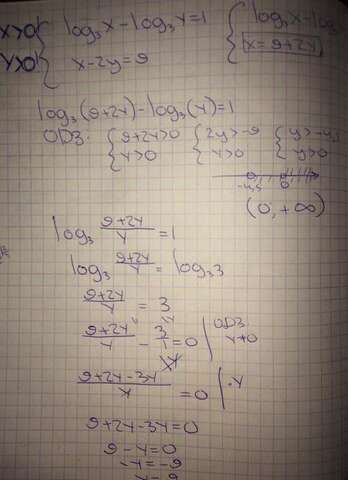 x>0 { log₃x-log₃y=1 { log₃x-log
y>0 { x-2y=9 x=9+2y
log₃(9+2y)-log₃(y)=1
ОДЗ: { 9+2y>0 { 2y>-9 { y>-4,5
{ y>0 { y>0 { y>0
-4,5 0
(0,+∞)
log₃ (9+2y)/y = 1
log₃ (9+2y)/y = log₃3
(9+2y)/y = 3
(9+2y)/y - 3/1 = 0 | ОДЗ y≠0
(9+2y-3y)/y = 0 | ·y
9+2y-3y=0
9-y=0
-y=-9
y=9